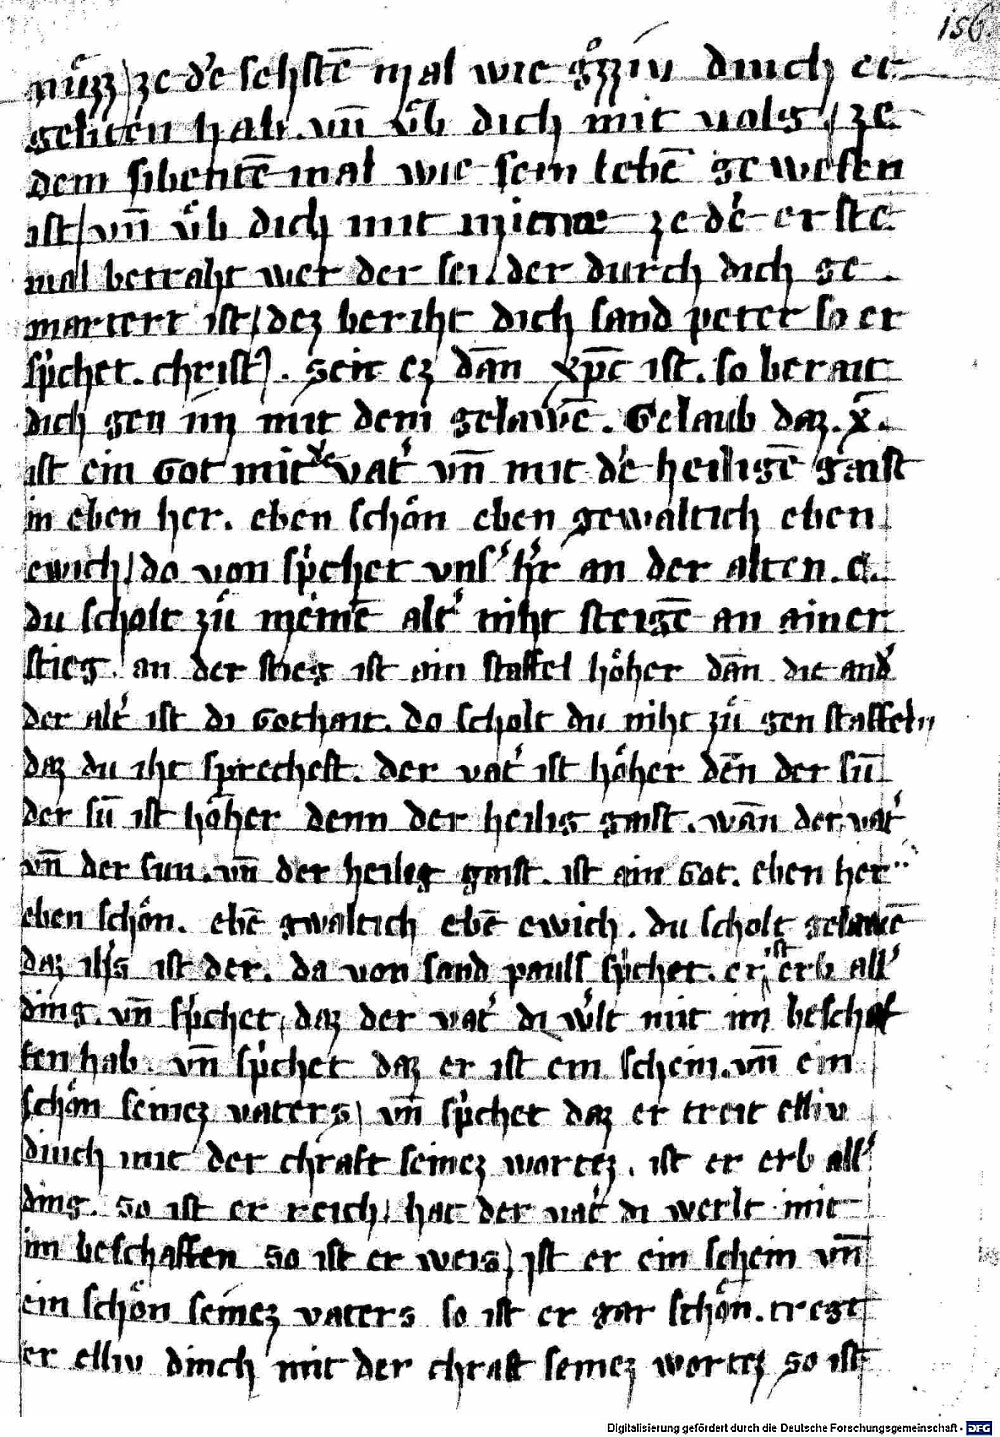 156.
nuͤzz / ze dˀe sehstē mal wie goͤzziu dinch er
geliten hab. vn̄ vͤb dich mit volg / ze
dem sibentē mal wie sein lebē gewesen
ist / vn̄ vͤb dich mit minne ze dˀe erstē
mal betraht wer der sei. der durch dich ge
martert ist / dez beriht dich sand peter so er
sp̍chet. christꝰ. Seit ez dān xp̄c ist. so berait
dich gen im mit dem gelawē. Gelaub daz. x̄.
ist ein Got mit vatˀ vn̄ mit dˀe heiligē gaist
in eben her. eben schoͤn eben gewaltich eben
ewich / do von sp̍chet vnsˀ hˀr an der alten. e.
du scholt zuͤ meinē altˀ niht steigē an ainer
stieg. an der stieg ist ain staffel hoͤher dān die andˀ
der altˀ ist di Gothait. Do scholt du niht zuͤ gen staffeln
daz du iht sprechest. der vatˀ ist hoͤher dēn der sūn
der sūn ist hoͤher denn der heilig gaist. wān der vatˀ
vn̄ der sun. vn̄ der heilig gaist. ist ain Got. eben her
eben schoͤn. ebē gwaltich ebē ewich. du scholt gelawē
daz ih̄s ist der. da von sand pauls sp̍chet. er ist erb allˀ
ding. vn̄ sp̍chet / daz der vatˀ di wˀlt mit im beschaf
fen hab. vn̄ sp̍chet daz er ist ein schein. vn̄ ein
schoͤn seinez vaters / vn̄ sp̍chet daz er treit elliv
dinch mit der chraft seinez wortez. ist er erb allˀ
ding. so ist er reich / hat der vatˀ di werlt mit
im beschaffen so ist er weis / ist er ein schein vn̄
ein schoͤn seinez vaters so ist er gar schoͤn. tregt
er elliv dinch mit der chraft seinez wortez so ist
Digitalisierung gefördert durch die Deutsche Forschungsgemeinschaft - DFG